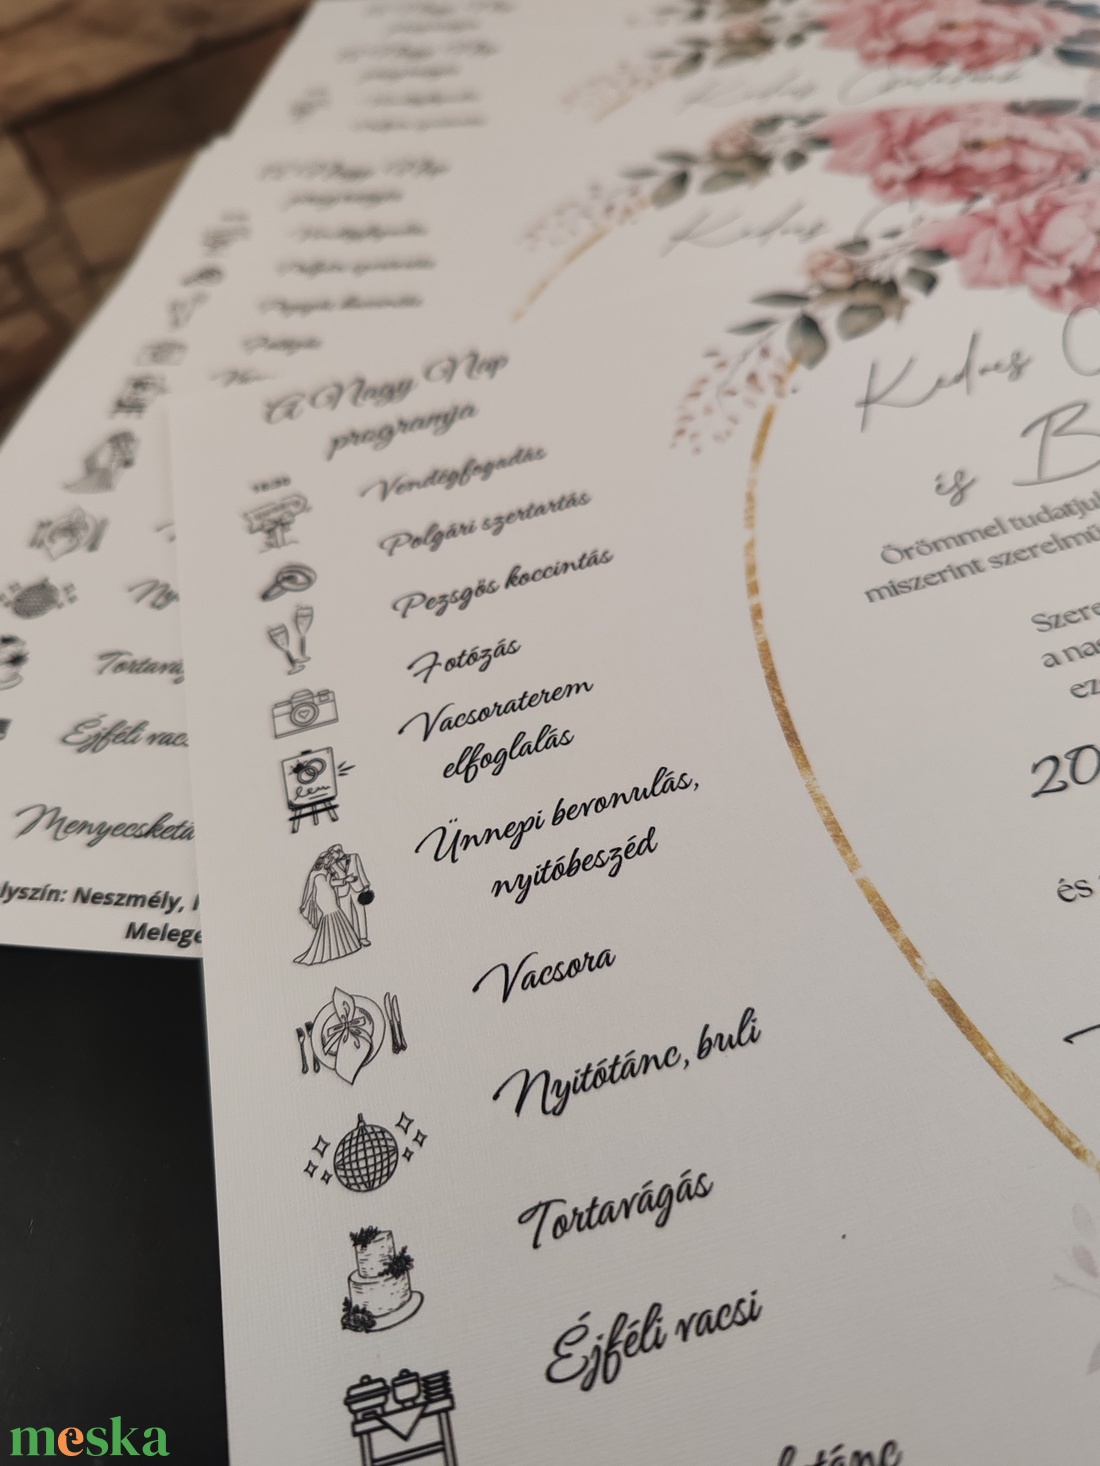 A Nagy Nap
programja
Vendégfogadás
Polgári szertartás
Pezsgős koccintás
Fotózás
Vacsoraterem
elfoglalás
Ünnepi bevonulás,
nyitóbeszéd
Vacsora
Nyitótánc, buli
Tortavágás
Éjféli vacsi
Kedves
és B
Örömmel tudatjuk
miszerint szerelmü
Szere
a na
ez
20
és
Kedves
Tortavá
Éjféli vac
Menyecsketá
lyszín: Neszmély,
Melege
meska